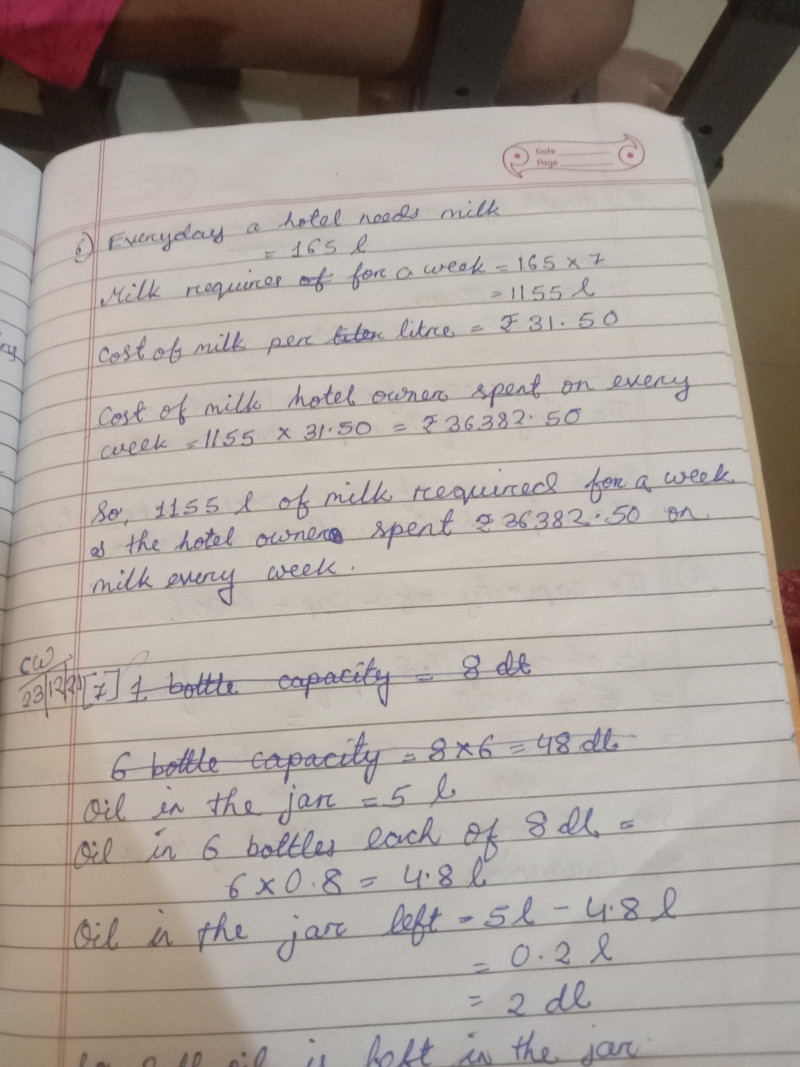 Date
Page
6) Everyday a hotel needs milk
= 165 l
Milk requires of for a week = 165 x 7
= 1155 l
Cost of milk per liter litre = ₹ 31.50
Cost of milk hotel owner spent on every
week = 1155 x 31.50 = ₹ 36382.50
So, 1155 l of milk required for a week
& the hotel owner spent ₹ 36382.50 on
milk every week.
CW
23/12/21 [7] 1 bottle capacity = 8 dl
6 bottle capacity = 8x6 = 48 dl
Oil in the jar = 5 l
Oil in 6 bottles each of 8 dl =
6 x 0.8 = 4.8 l
Oil in the jar left = 5l - 4.8 l
= 0.2 l
= 2 dl
oil is left in the jar.